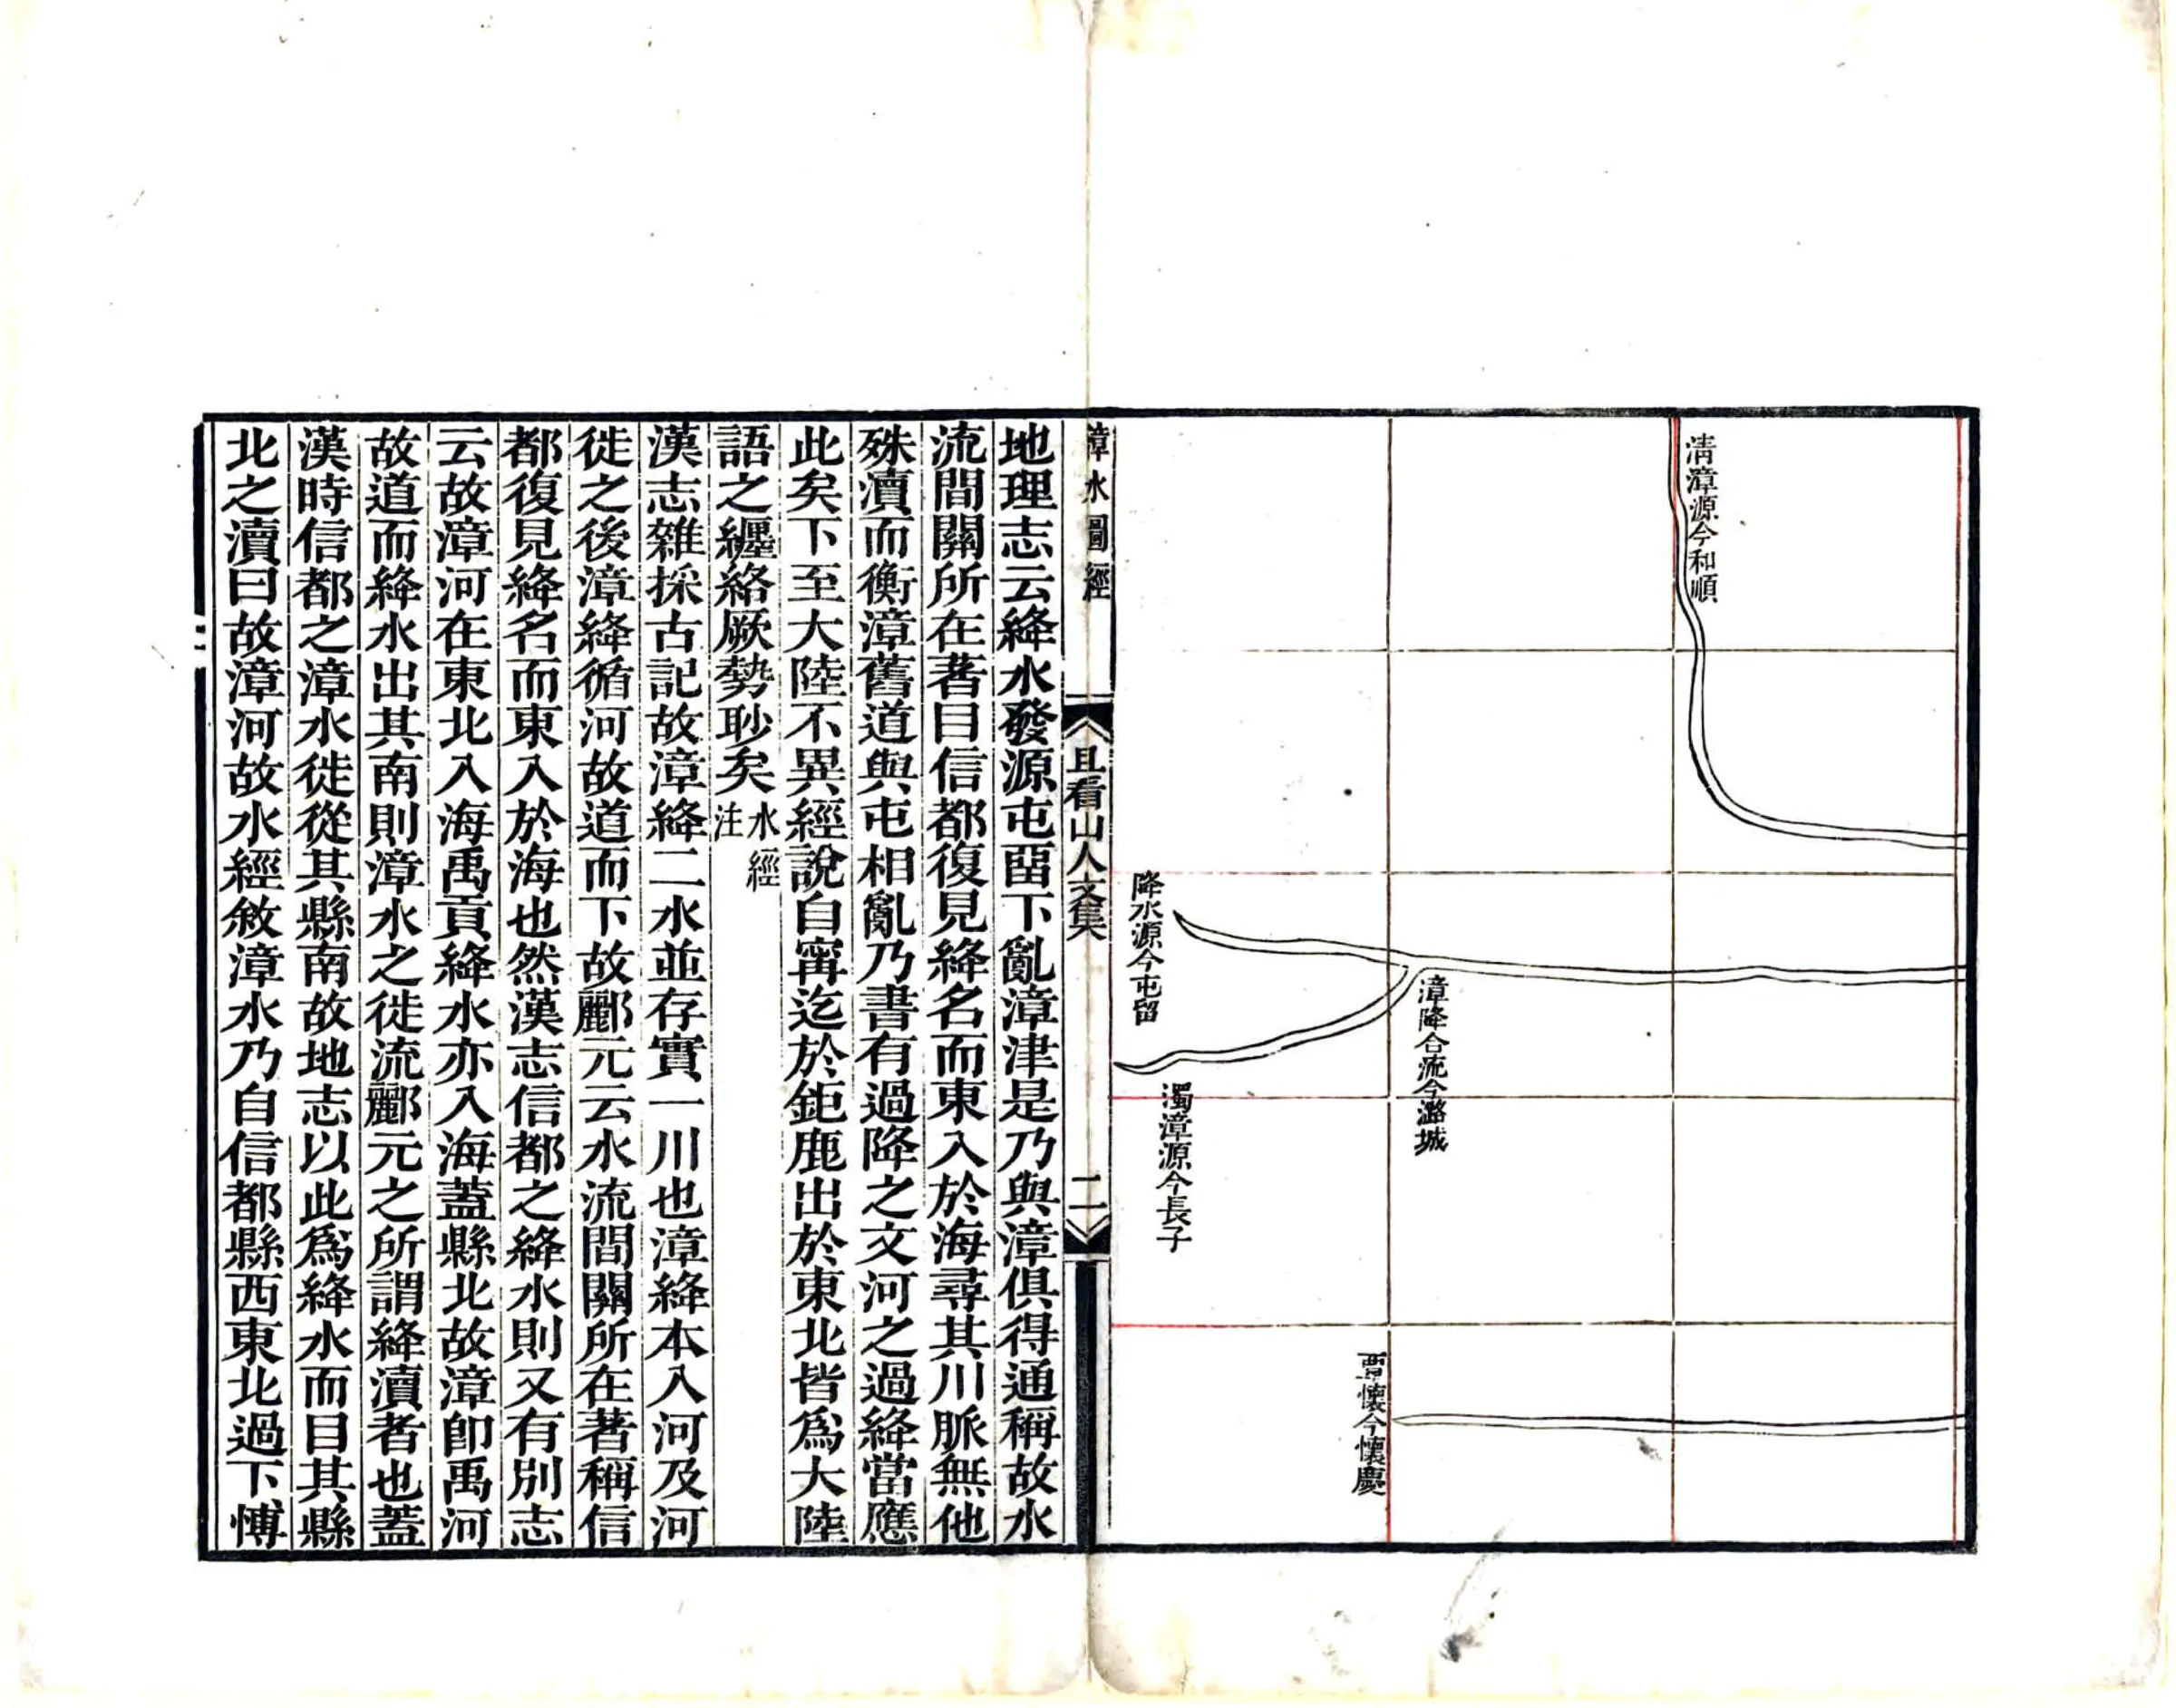 清漳源今和順
漳降合流今潞城
覃懷今懷慶
濁漳源今長子
降水源今屯留
漳水圖經
且看山人文集
二
地理志云絳水發源屯留下亂漳津是乃與漳俱得通稱故水
流間關所在著目信都復見絳名而東入於海尋其川脈無他
殊瀆而衡漳舊道與屯相亂乃書有過降之文河之過絳當應
此矣下至大陸不異經說自甯迄於鉅鹿出於東北皆爲大陸
語之纏絡厥勢眇矣水經注
漢志雜採古記故漳絳二水並存實一川也漳絳本入河及河
徙之後漳絳循河故道而下故酈元云水流間關所在著稱信
都復見絳名而東入於海也然漢志信都之絳水則又有別志
云故漳河在東北入海禹貢絳水亦入海蓋縣北故漳卽禹河
故道而絳水出其南則漳水之徙流酈元之所謂絳瀆者也蓋
漢時信都之漳水徙從其縣南故地志以此爲絳水而目其縣
北之瀆曰故漳河故水經敘漳水乃自信都縣西東北過下博